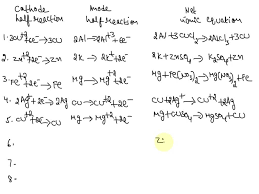 Cathode half reaction
Anode half reaction
Net ionic equation
1. 3Cu⁺²+6e⁻→3Cu
2Al→2Al⁺³+6e⁻
2Al+3CuCl₂→2AlCl₃+3Cu
2. Zn⁺²+2e⁻→Zn
2K→2K⁺+2e⁻
2K+ZnSO₄→K₂SO₄+Zn
3. Fe⁺²+2e⁻→Fe
Mg→Mg⁺²+2e⁻
Mg+Fe(NO₃)₂→Mg(NO₃)₂+Fe
4. 2Ag⁺+2e⁻→2Ag
Cu→Cu⁺²+2e⁻
Cu+2Ag⁺→Cu⁺²+2Ag
5. Cu⁺²+2e⁻→Cu
Mg→Mg⁺²+2e⁻
Mg+CuSO₄→MgSO₄+Cu
6.
7.
8.